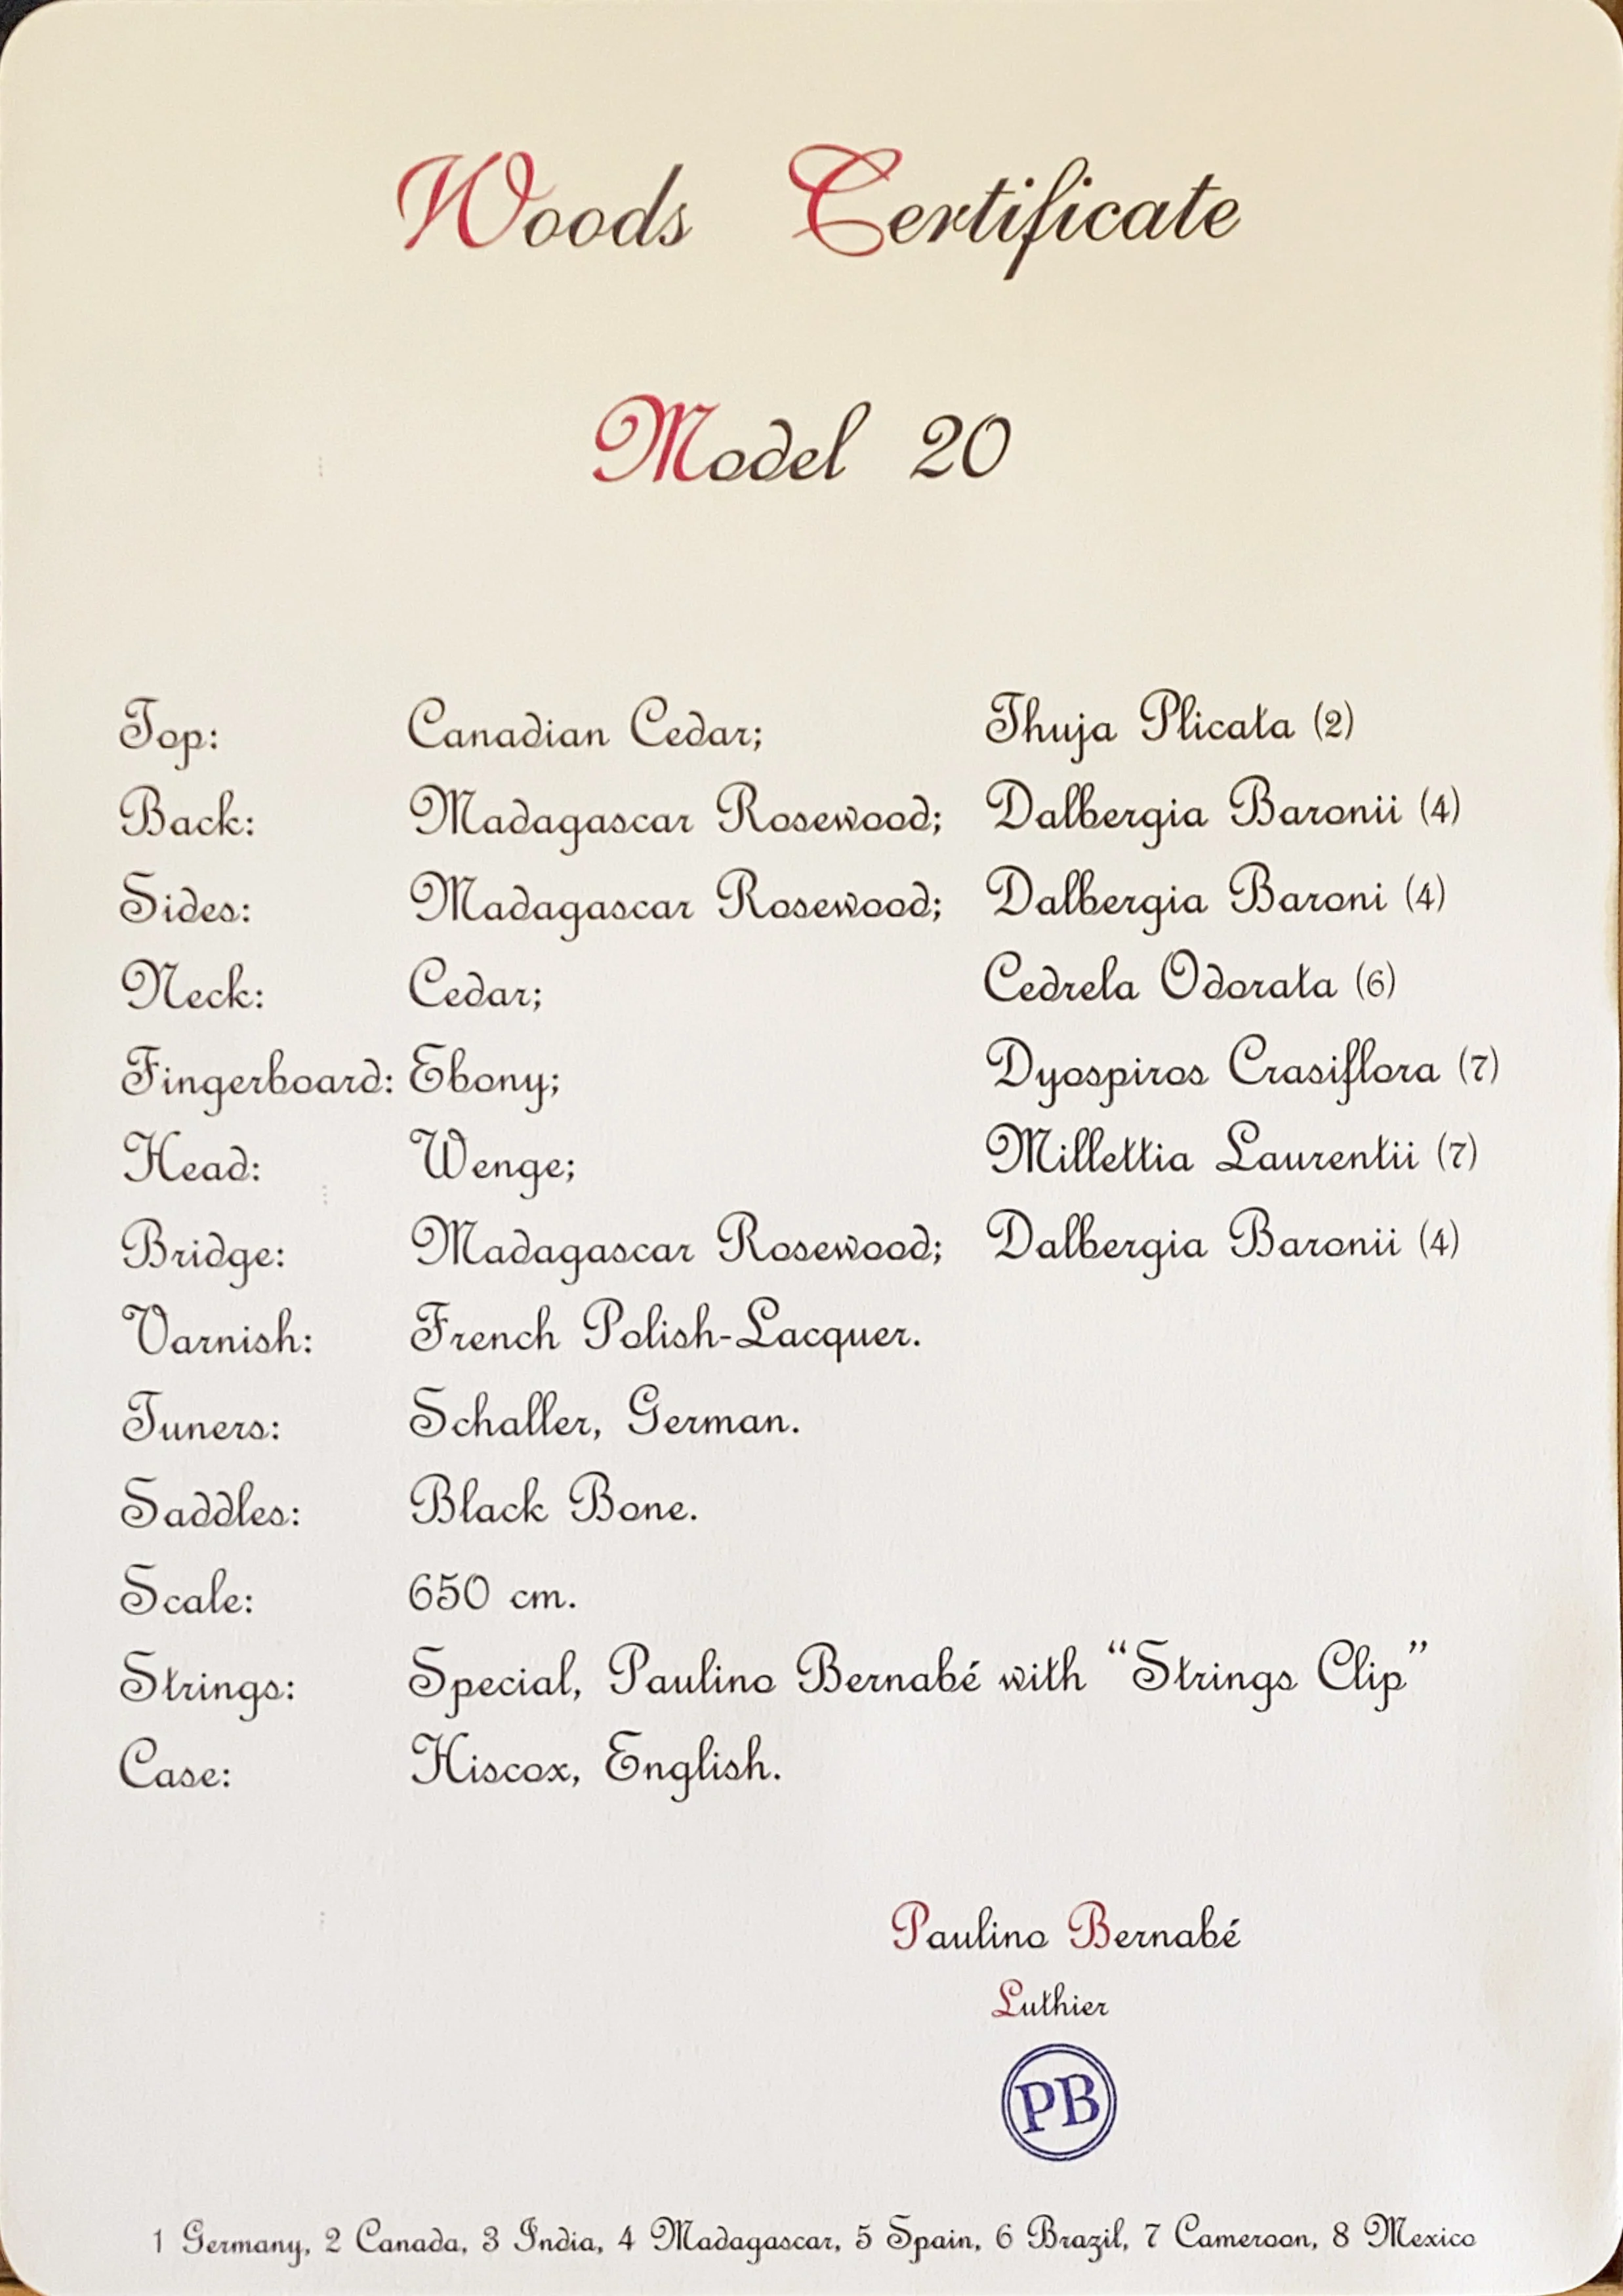 Woods Certificate
Model 20
Top: Canadian Cedar; Thuja Plicata (2)
Back: Madagascar Rosewood; Dalbergia Baronii (4)
Sides: Madagascar Rosewood; Dalbergia Baroni (4)
Neck: Cedar; Cedrela Odorata (6)
Fingerboard: Ebony; Dyospiros Crasiflora (7)
Head: Wenge; Millettia Laurentii (7)
Bridge: Madagascar Rosewood; Dalbergia Baronii (4)
Varnish: French Polish-Lacquer.
Tuners: Schaller, German.
Saddles: Black Bone.
Scale: 650 cm.
Strings: Special, Paulino Bernabé with “Strings Clip”
Case: Hiscox, English.
Paulino Bernabé
Luthier
PB
1 Germany, 2 Canada, 3 India, 4 Madagascar, 5 Spain, 6 Brazil, 7 Cameroon, 8 Mexico